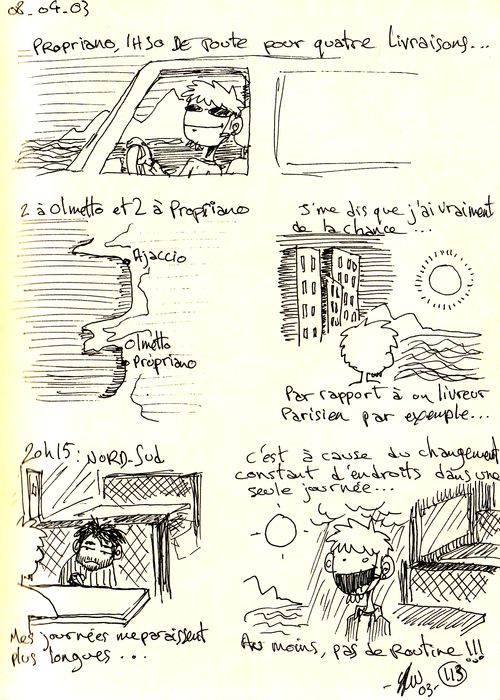 08_04_03
Propriano, 1H30 DE ROUTE pour quatre livraisons...
2 à Olmetto et 2 à Propriano
Ajaccio
Olmetto
Propriano
J'me dis que j'ai vraiment
de la chance ....
Par rapport à un livreur
Parisien par exemple...
20h15: NORD-Sud
Mes journées me paraissent
plus longues ...
c'est à cause du changement
constant d'endroits dans une
seule journée...
Au moins, pas de Routine !!!...
03. 113